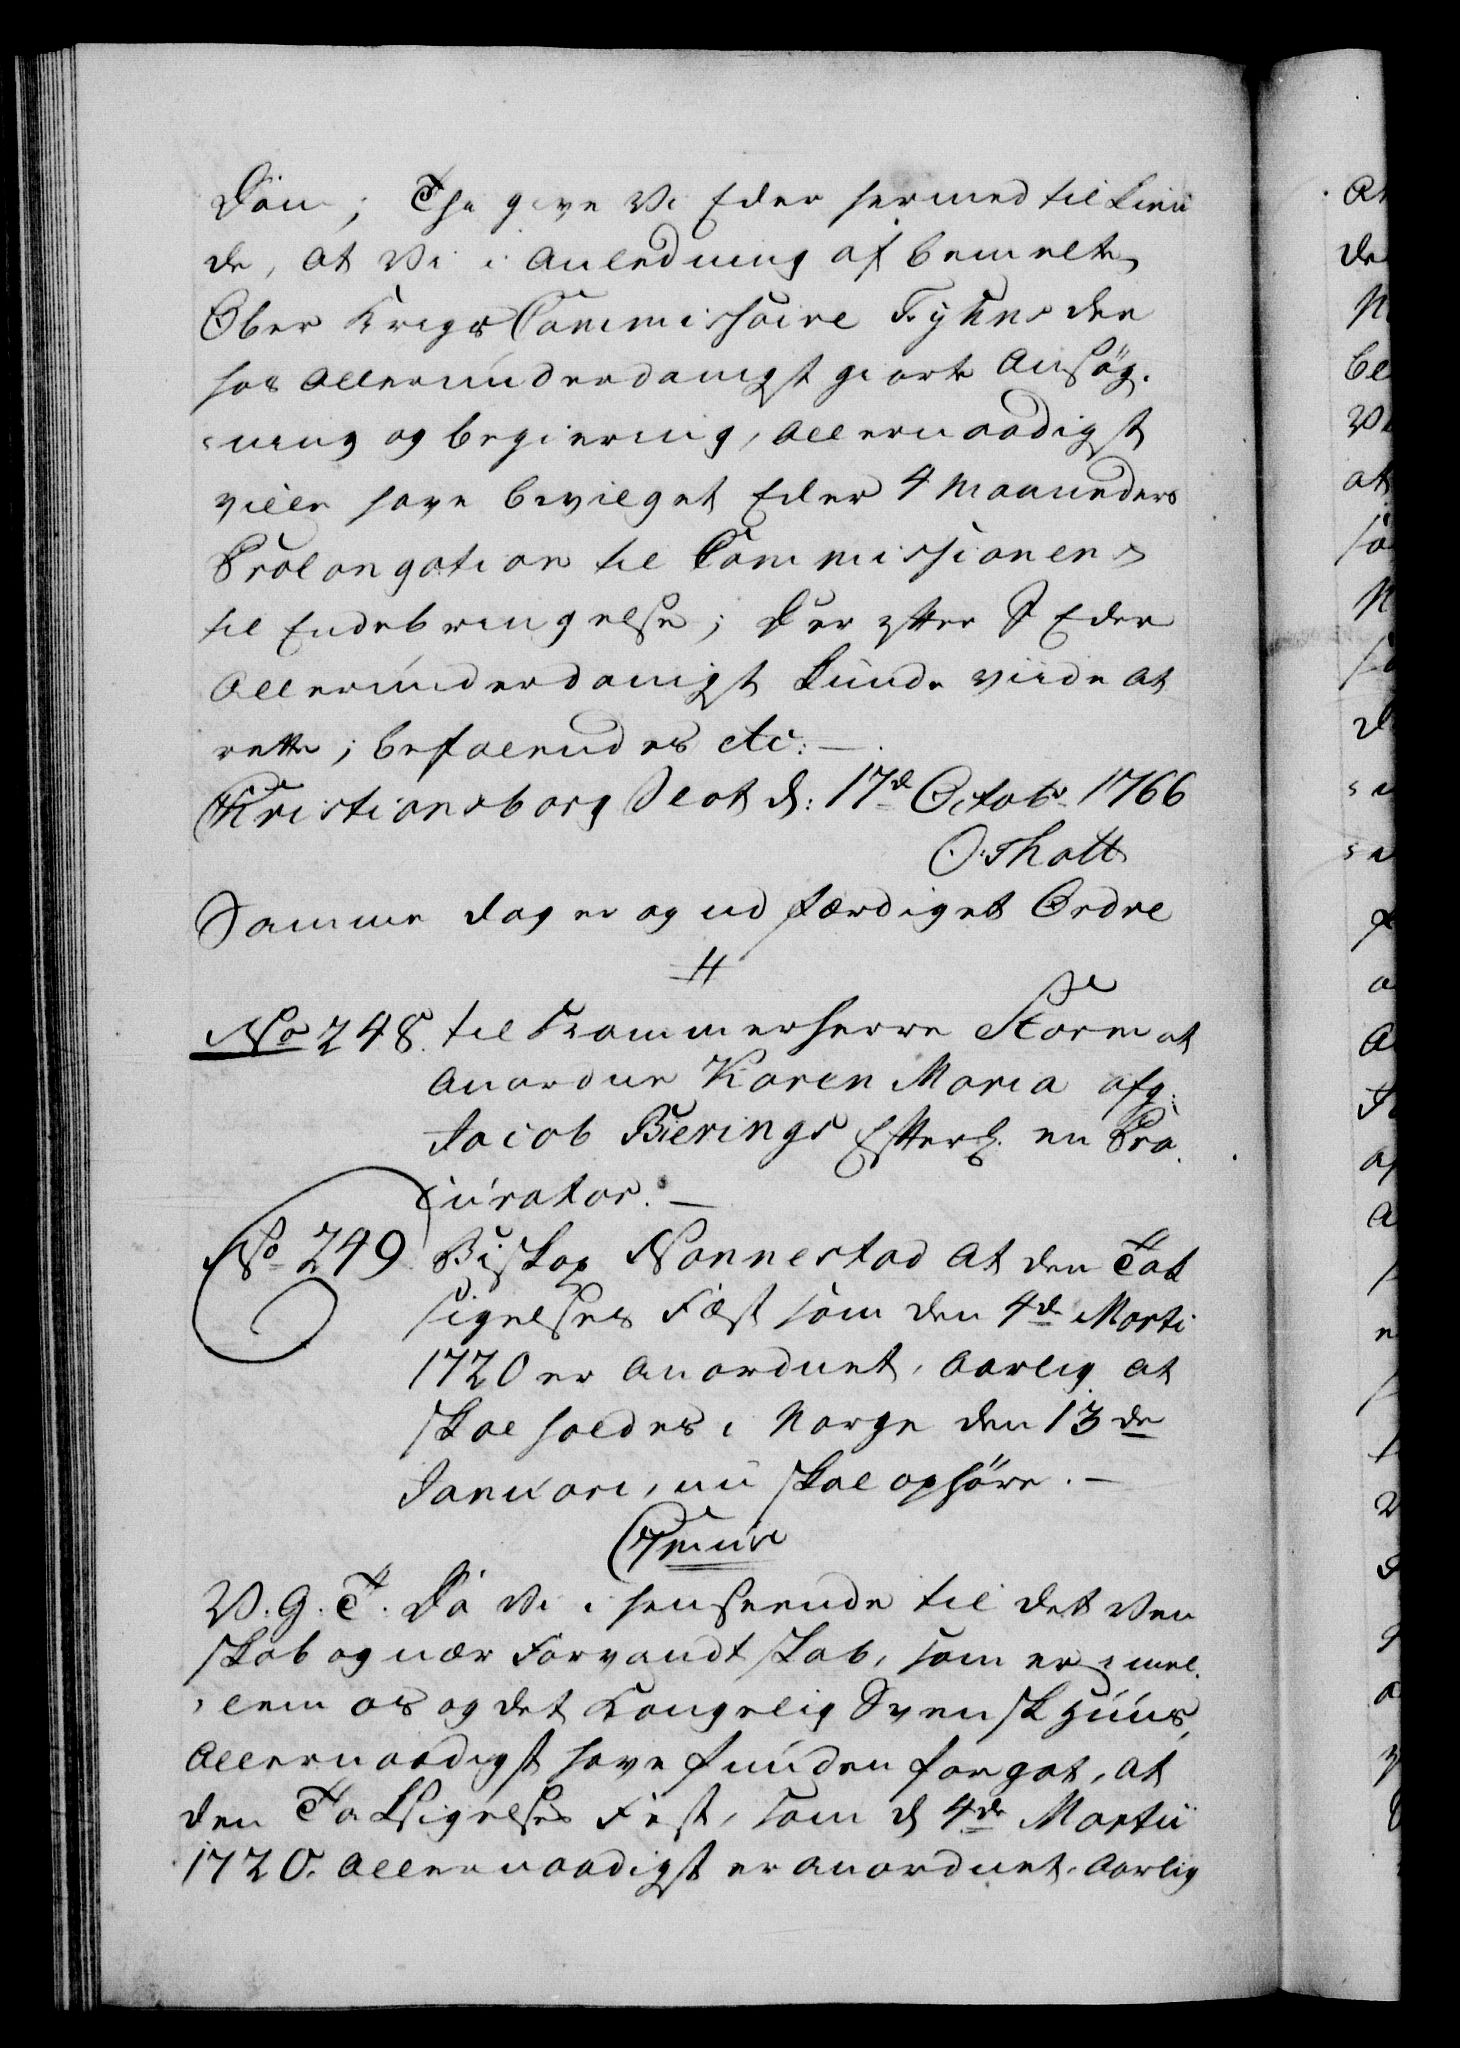 Döm; Thi give Vi Eder hermed til kien
de, at Vi i Anledning af bemelte
Ober Krigs Commissaire Fyhns der
hos allerunderdanigst giorte Ansög¬
ning og begiering, allernaadigst
ville have bevilget Eder 4 Maaneders
Prolongation til Commissionens
til Endebringelse; Der efter I Eder
allerunderdanigst kunde viide at
rette; befalendes etc: —
Christiansborg Slot d: 17de Octobr 1766
O: Thott
Samme dag er og udfærdiget Ordre
No 248. til Kammerherre Storm at
anordne Karen Maria afg:
Jacob Bierings Efterl. en Pro¬
curator. —
No 249 Biskop Nannestad at den Tak
sigelses Fæst som den 4de Marti
1720 er anordnet, aarlig at
skal holdes i Norge den 13de
Januari, nu skal ophöre. —
V. G. T. Da Vi i henseende til det Ven
skab og nær Forvandtskab, som er imel¬
lem os og det Kongelig Svensk Huus,
allernaadigst have funden for got, at
den Taksigelses Fest, som d 4de Martii
1720. allernaadigst er anordnet, aarlig